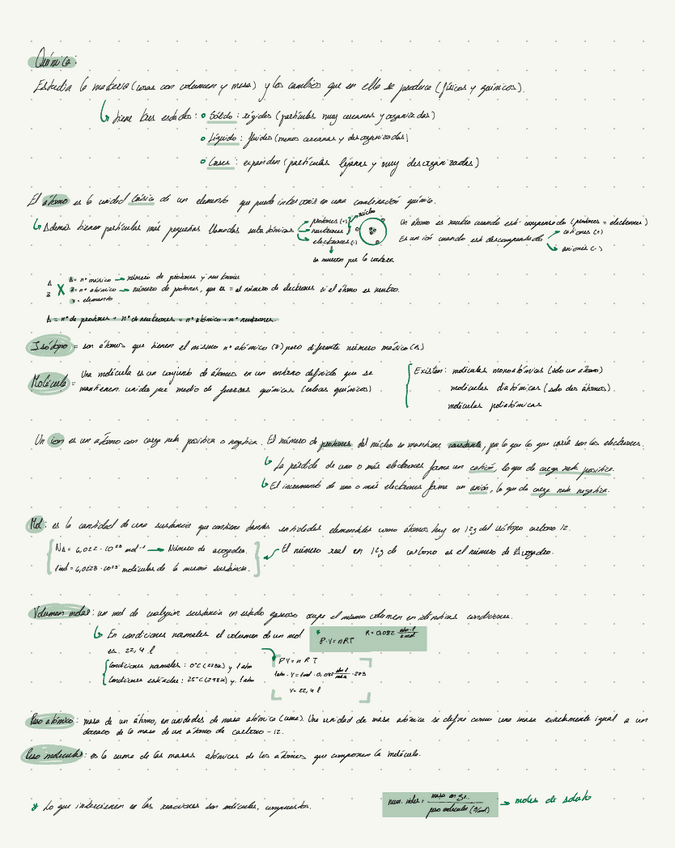 Química:
Estudia la materia (cosas con volumen y masa) y los cambios que en ella se produce (físicos y químicos).
tiene tres estados: Sólido: rígidos (partículas muy cercanas y organizadas)
Líquido: fluidos (menos cercanas y desorganizadas)
Gases: expanden (partículas lejanas y muy desorganizadas)
El átomo es la unidad básica de un elemento que puede intervenir en una combinación química.
Además tienen partículas más pequeñas llamadas subatómicas
protones (+)
neutrones
electrones (-)
núcleo
se mueven por la corteza
Un átomo es neutro cuando está compensado (protones = electrones)
Es un ión cuando está descompensado
cationes (+)
aniones (-)
A
Z
X
A = nº másico → número de protones y neutrones
Z = nº atómico → número de protones, que es = al número de electrones si el átomo es neutro.
X = elemento
A = nº de protones + nº de neutrones = nº atómico + nº neutrones
Isótopo = son átomos que tienen el mismo nº atómico (Z) pero diferente número másico (A)
Molécula = Una molécula es un conjunto de átomos en un entorno definido que se
mantienen unidos por medio de fuerzas químicas (enlaces químicos)
Existen: moléculas monoatómicas (solo un átomo)
moléculas diatómicas (solo dos átomos)
moléculas poliatómicas
Un ion es un átomo con carga neta positiva o negativa. El número de protones del núcleo se mantiene constante, por lo que lo que varía son los electrones.
La pérdida de uno o más electrones forma un catión, lo que da carga neta positiva.
El incremento de uno o más electrones forma un anión, lo que da carga neta negativa.
Mol: es la cantidad de una sustancia que contiene tantas entidades elementales como átomos hay en 12g del isótopo carbono 12.
NA = 6,022 · 10²³ mol⁻¹ → Número de avogadro.
1 mol = 6,022 · 10²³ moléculas de la misma sustancia.
El número real en 12g de carbono es el número de Avogadro.
Volumen molar: un mol de cualquier sustancia en estado gaseoso ocupa el mismo volumen en idénticas condiciones.
En condiciones normales el volumen de un mol
es 22,4 l
P·V = nRT
R = 0,082
Condiciones normales: 0°C (273K) y 1 atm
Condiciones estándar: 25°C (298K) y 1 atm
P·V = nRT
1 atm · V = 1 mol · 0,082 · 273
V = 22,4 l
Peso atómico: masa de un átomo, en unidades de masa atómica (uma). Una unidad de masa atómica se define como una masa exactamente igual a un
doceavo de la masa de un átomo de carbono-12.
Peso molecular: es la suma de las masas atómicas de los átomos que componen la molécula.
* Lo que intervienen en las reacciones son moléculas, compuestos.
num. moles = masa en gr. / peso molecular (g/mol) → moles de soluto